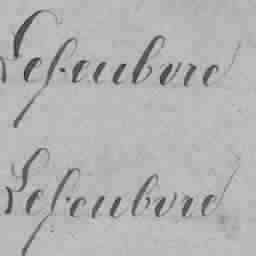 Lefeubvre
Lefeubvre